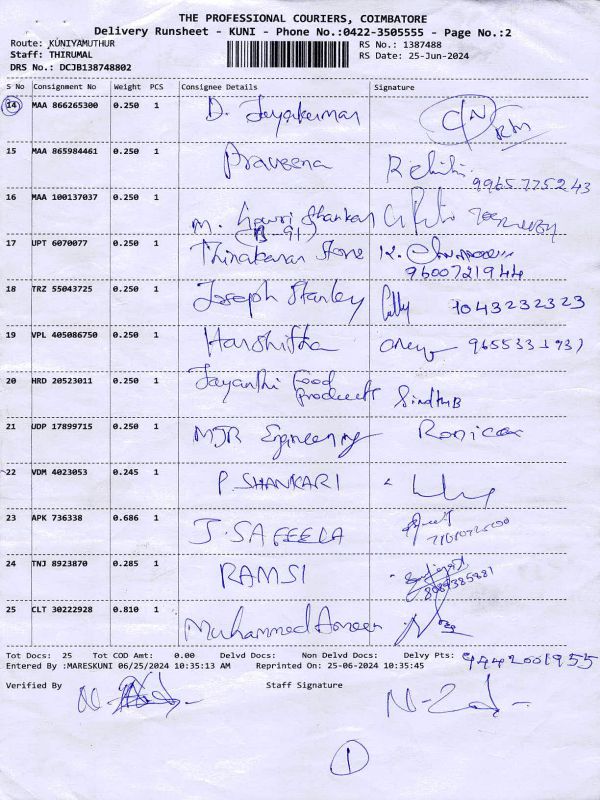 THE PROFESSIONAL COURIERS, COIMBATORE
Delivery Runsheet - KUNI - Phone No.:0422-3505555 - Page No.:2
Route: KUNIYAMUTHUR RS No.: 1387488
Staff: THIRUMAL RS Date: 25-Jun-2024
DRS No.: DCJB138748802
S No Consignment No Weight PCS Consignee Details Signature
14 MAA 866265300 0.250 1 D. Jayakumar
15 MAA 865984461 0.250 1 Praveena
9965775243
16 MAA 100137037 0.250 1 M. Gowri Shankar
17 UPT 6070077 0.250 1 Thinakaran Stone
9600721944
18 TRZ 55043725 0.250 1 Joseph Stanley 7043232323
19 VPL 405086750 0.250 1 Harshitha
20 HRD 20523011 0.250 1 Jayanthi Food Products Sindhu B
21 UDP 17899715 0.250 1 MJR Engineering
22 VDM 4023053 0.245 1 P. SHANKARI
23 APK 736338 0.686 1 J. SAFEELA
24 TNJ 8923870 0.285 1 RAMSI
25 CLT 30222928 0.810 1 Muhammed Ameer
Tot Docs: 25 Tot COD Amt: 0.00 Delvd Docs: Non Delvd Docs: Delvy Pts: 9442001955
Entered By :MARESKUNI 06/25/2024 10:35:13 AM Reprinted On: 25-06-2024 10:35:45
Verified By Staff Signature
1